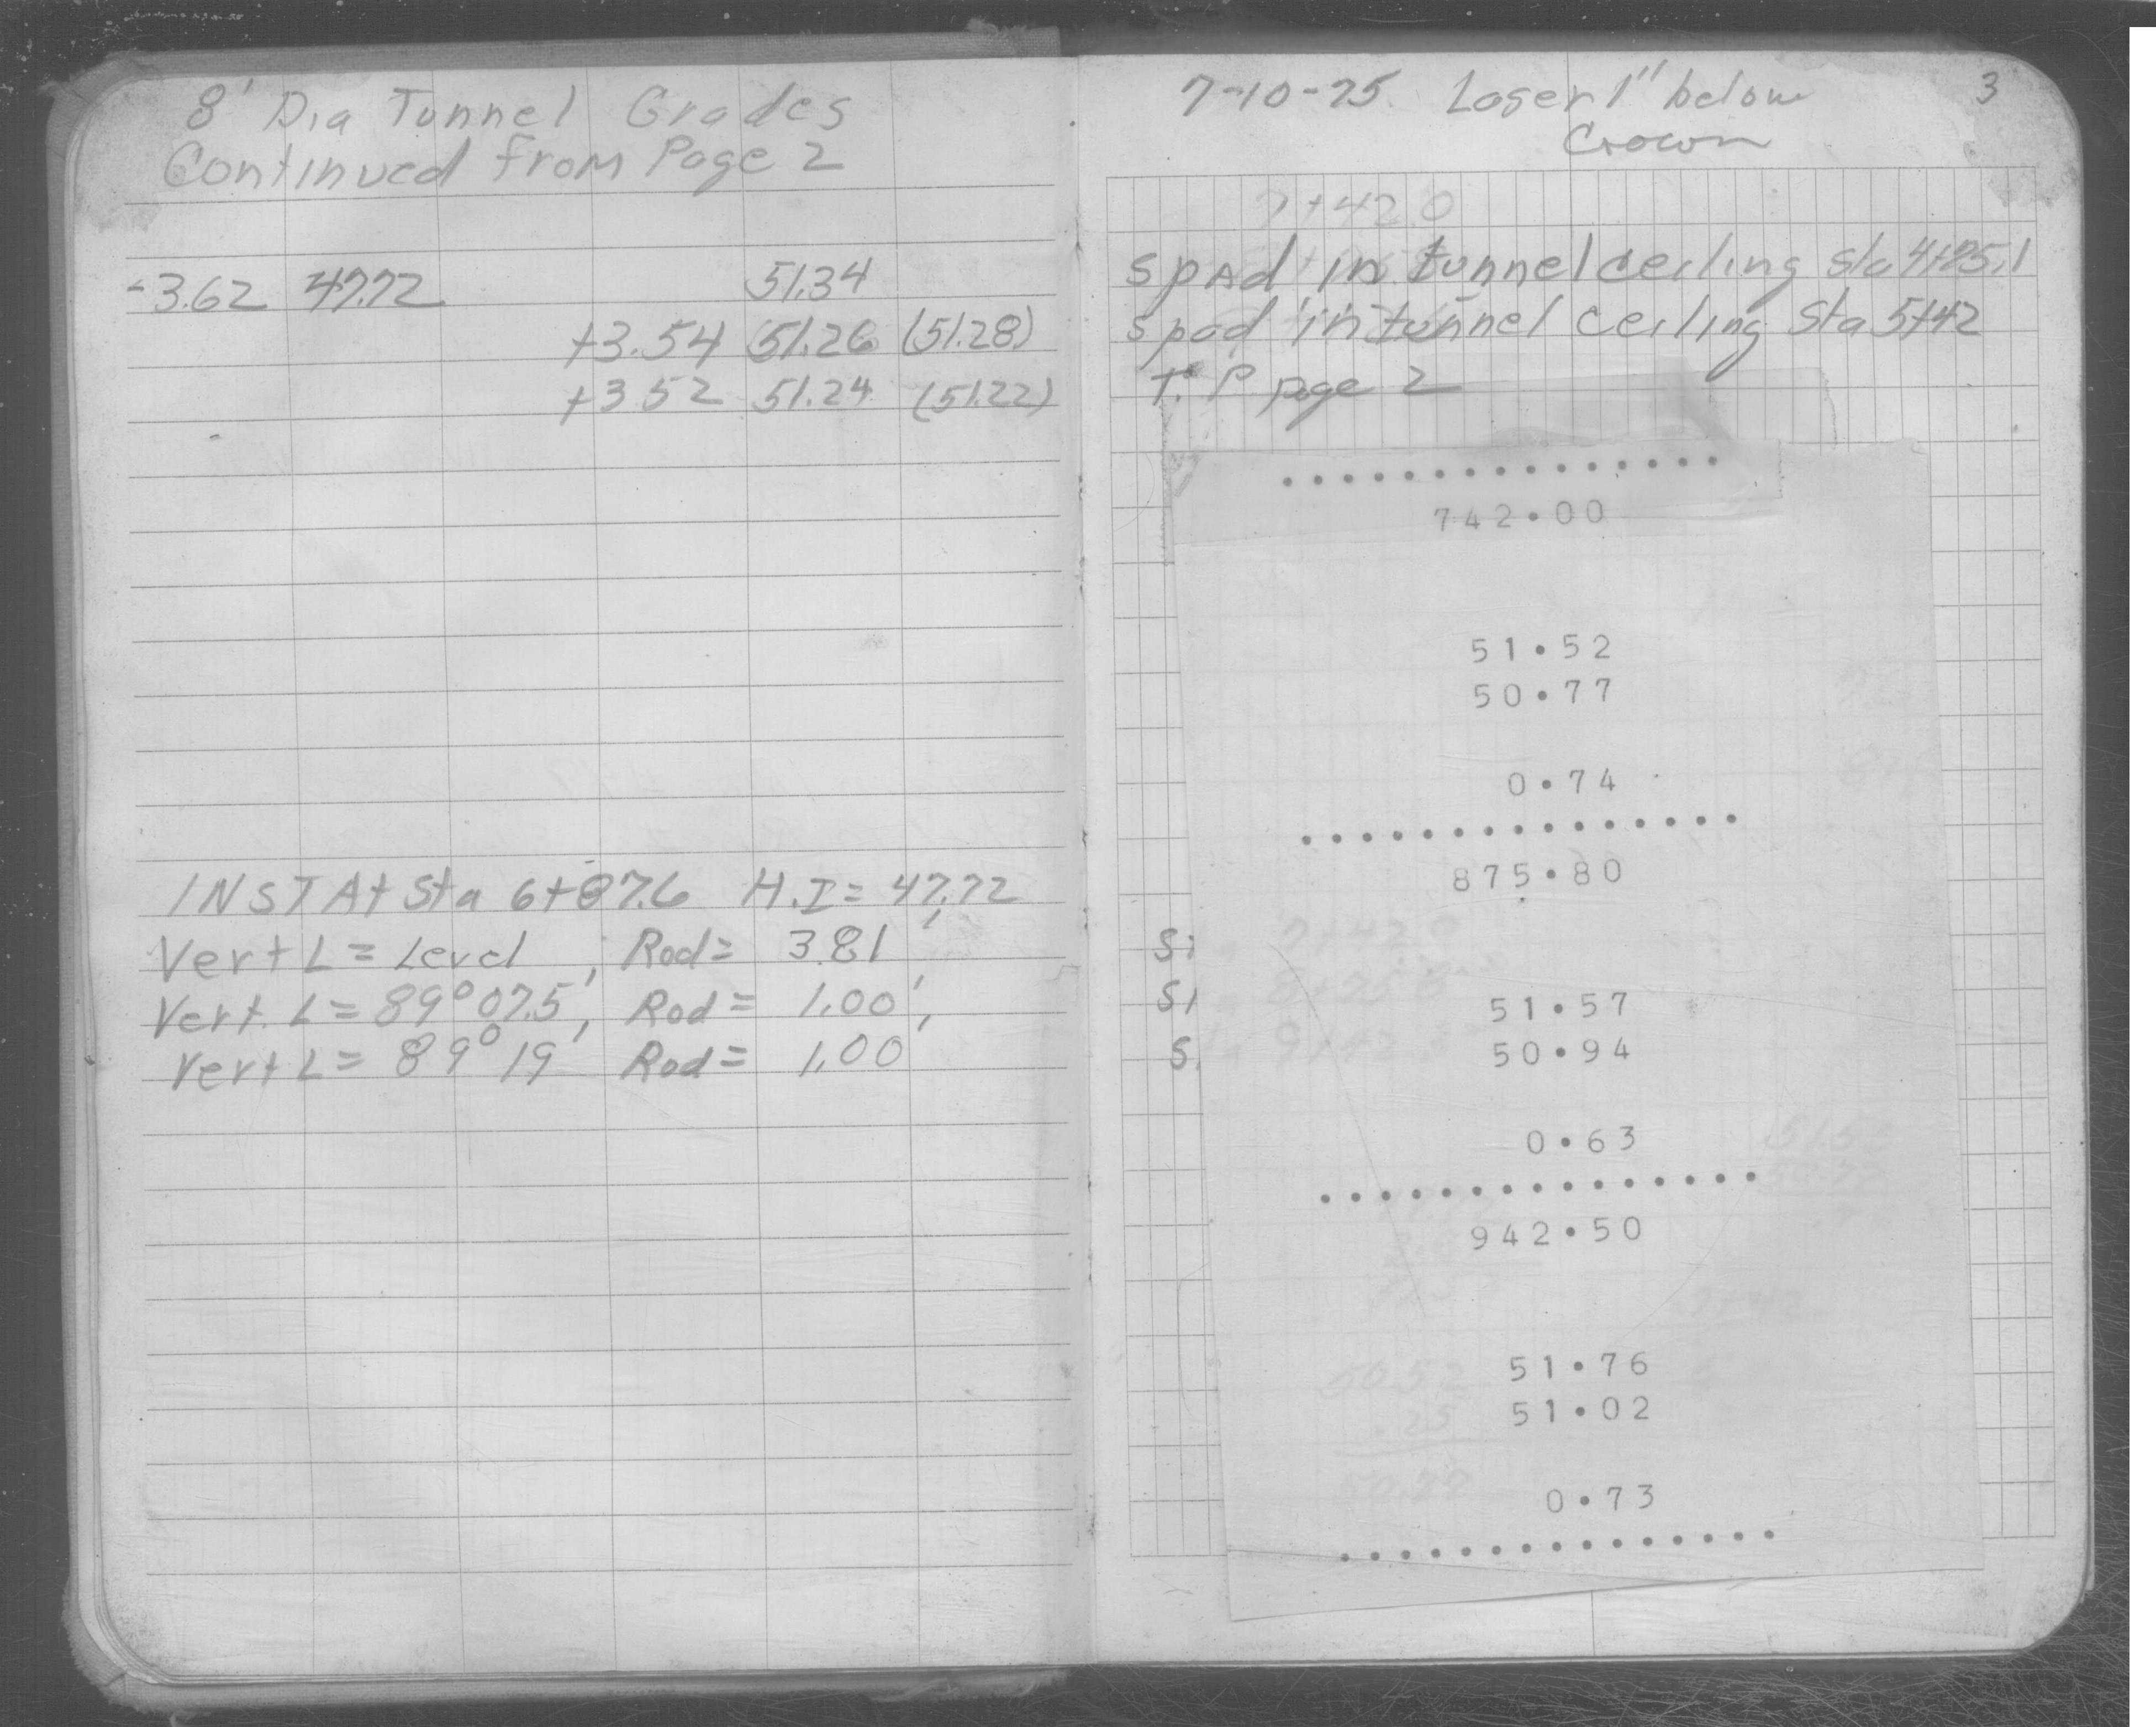 8' Dia Tunnel Grades
Continued From Page 2
-3.62 47.72 51.34
+3.54 51.26 (51.28)
+3.52 51.24 (51.22)
INST At Sta 6+87.6 H.I = 47.72
Vert L = Level, Rod = 3.81',
Vert. L = 89° 07.5', Rod = 1.00',
Vert L = 89° 19' Rod = 1.00
7-10-75. Laser 1" below 3
Crown
7+42.0
spad in tunnel ceiling sta 4+25.1
spad in tunnel ceiling Sta 5+42
T.P page 2
742.00
51.52
50.77
0.74
875.80
51.57
50.94
0.63
942.50
51.76
51.02
0.73